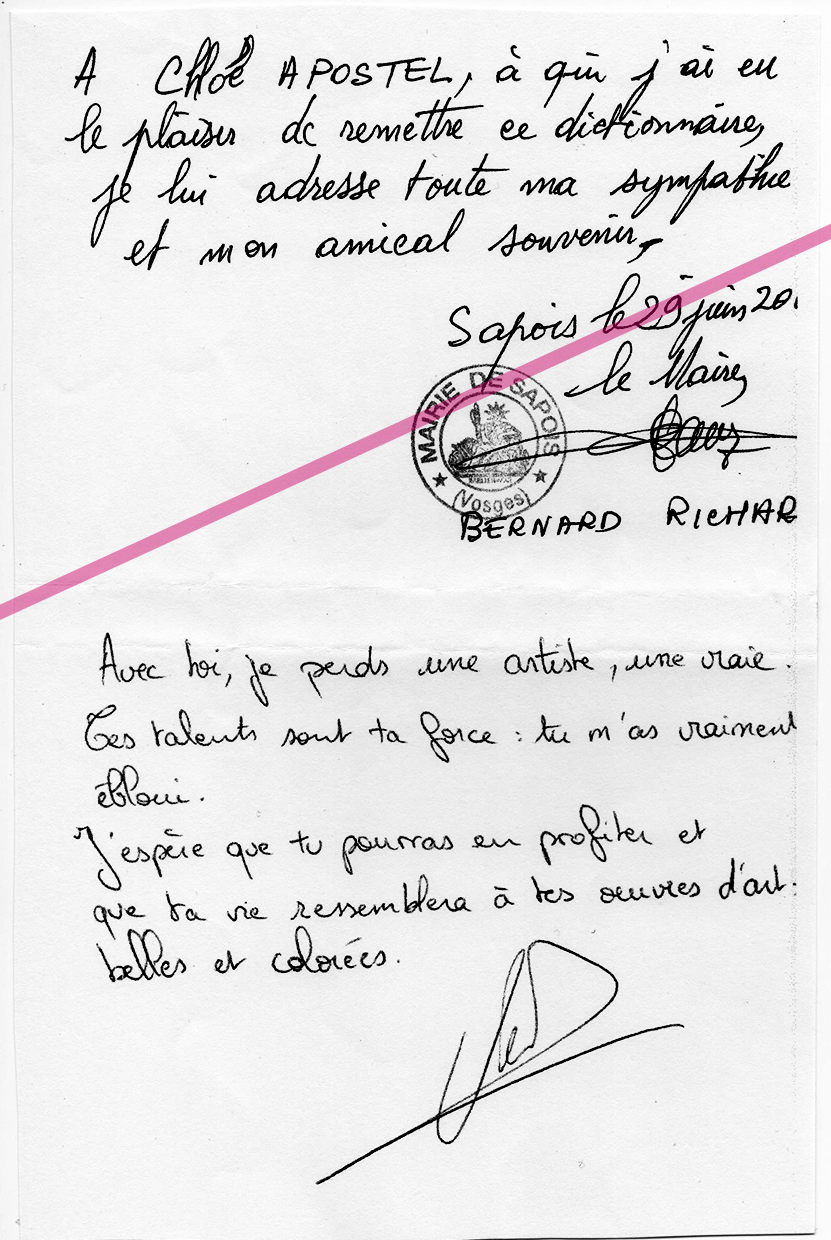 A Chloé APOSTEL, à qui j'ai eu
le plaisir de remettre ce dictionnaire,
je lui adresse toute ma sympathie
et mon amical souvenir,
Sapois le 29 juin 20
le Maire,
MAIRIE DE SAPOIS
(Vosges)
BERNARD RICHAR
Avec toi, je perds une artiste, une vraie.
Tes talents sont ta force : tu m'as vraiment
ébloui.
J'espère que tu pourras en profiter et
que ta vie ressemblera à tes oeuvres d'art :
belles et colorées.